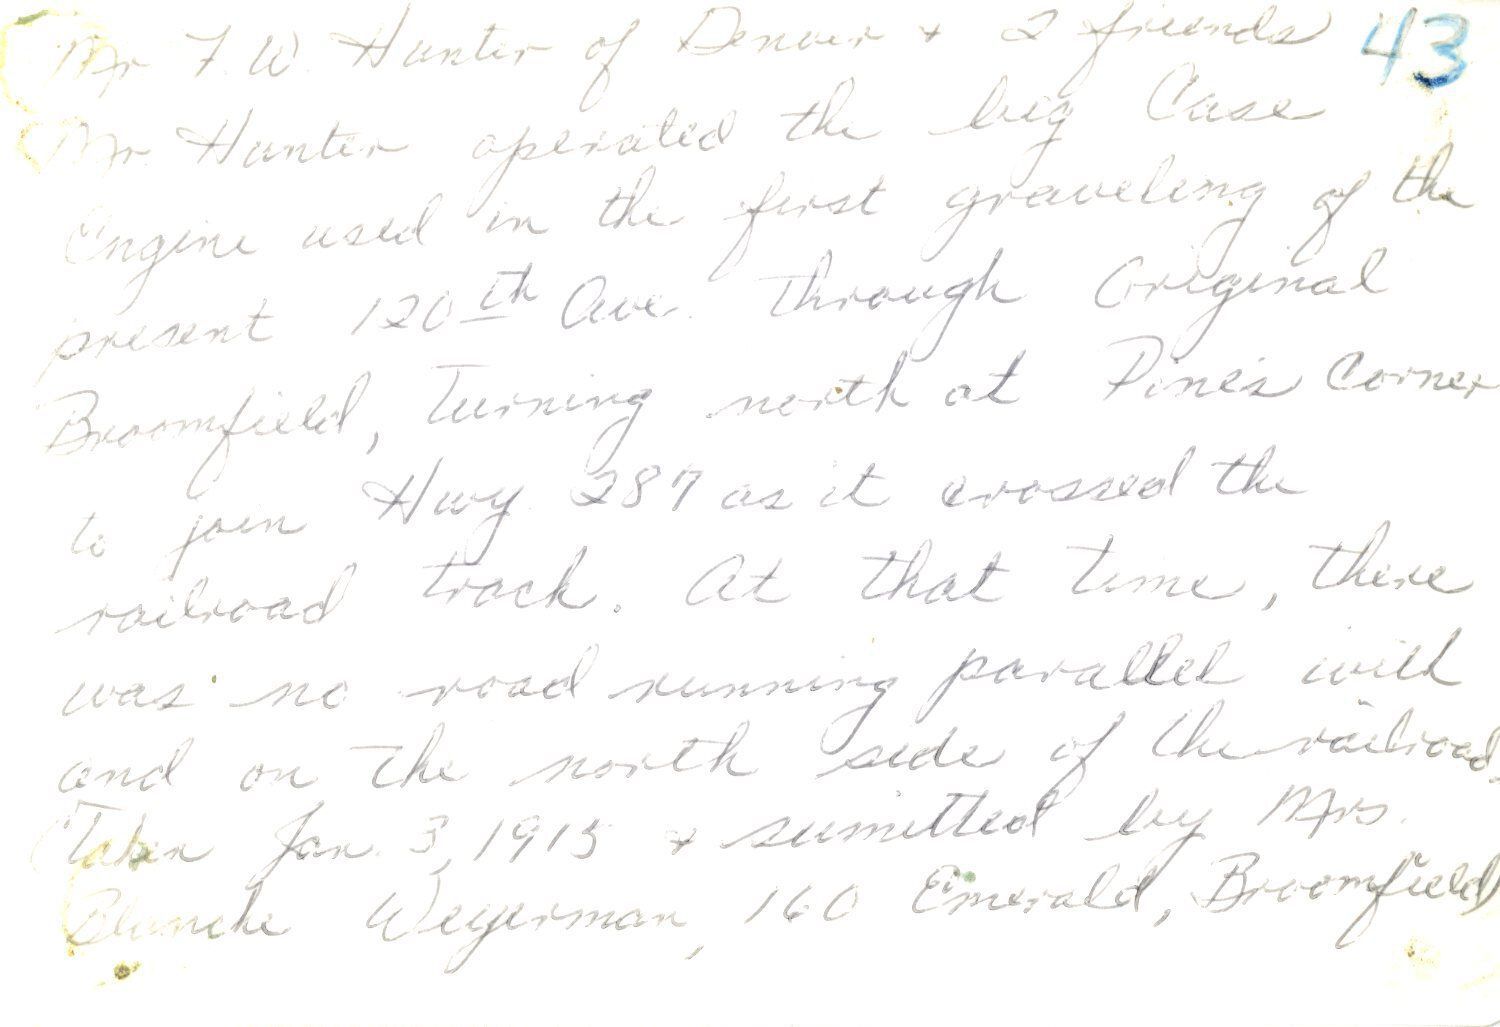 Mr F. W. Hunter of Denver + 2 friends 43
Mr. Hunter operated the big Case
Engine used in the first graveling of the
present 120th Ave. through Original
Broomfield, Turning north at Pine's Corner
to join Hwy 287 as it crossed the
railroad track. At that time, there
was no road running parallel with
and on the north side of the railroad.
(Taken Jan. 3, 1915 + sumitted by Mrs.
Blanche Wegerman, 160 Emerald, Broomfield